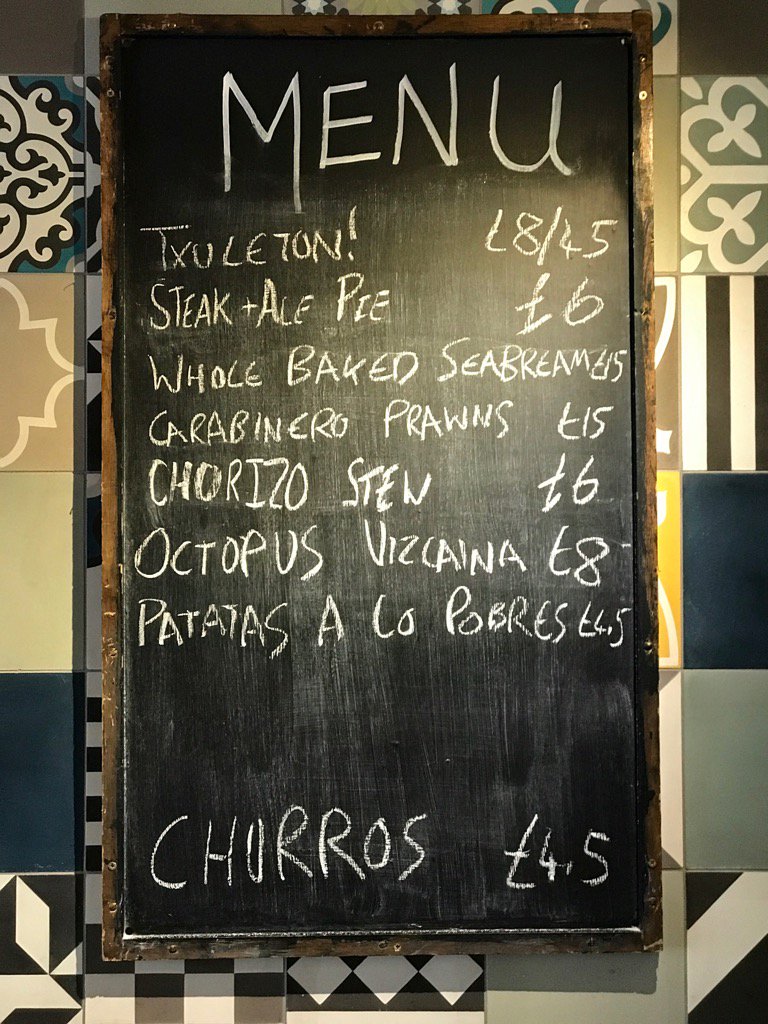 MENU
TXULETON! £8/45
STEAK + ALE PIE £6
WHOLE BAKED SEABREAM £15
CARABINERO PRAWNS £15
CHORIZO STEW £6
OCTOPUS VIZCAINA £8
PATATAS A LO POBRES £4.5
CHURROS £4.5